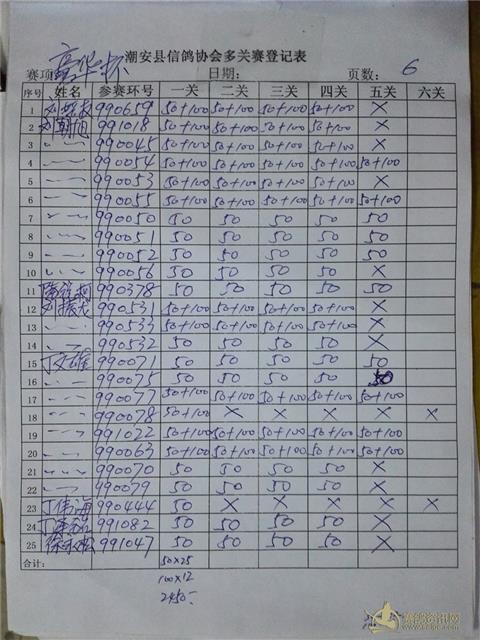 潮安县信鸽协会多关赛登记表
赛项: 高华杯 日期: 页数: 6
序号 姓名 参赛环号 一关 二关 三关 四关 五关 六关
1 990659 50+100 50+100 50+100 50+100 ×
2 刘朝旭 991018 50+100 50+100 50+100 50+100 ×
3 990045 50+100 50+100 50+100 50+100 ×
4 990054 50+100 50+100 50+100 50+100 50+100
5 990053 50+100 50+100 50+100 50+100 ×
6 990055 50+100 50+100 50+100 50+100 50+100
7 990050 50 50 50 50 50
8 990051 50 50 50 50 50
9 990052 50 50 50 50 50
10 990056 50 50 50 50 ×
11 990378 50 50 50 50 50
12 990531 50+100 50+100 50+100 50+100 ×
13 990533 50+100 50+100 50+100 50+100 ×
14 990532 50 50 50 50 ×
15 丁文雄 990071 50 50 50 50 50
16 990075 50 50 50 50 50
17 990077 50+100 50+100 50+100 50+100 50+100
18 990078 50+100 × × × × ×
19 991022 50+100 50+100 50+100 50+100 50+100
20 990063 50+100 50+100 50+100 50+100 50+100
21 990070 50 50 50 50 ×
22 990079 50 50 50 50 ×
23 丁伟海 990444 50 × × × × ×
24 991082 50 50 50 50 ×
25 991047 50 50 50 50 ×
合计: 50×25
100×12
2450